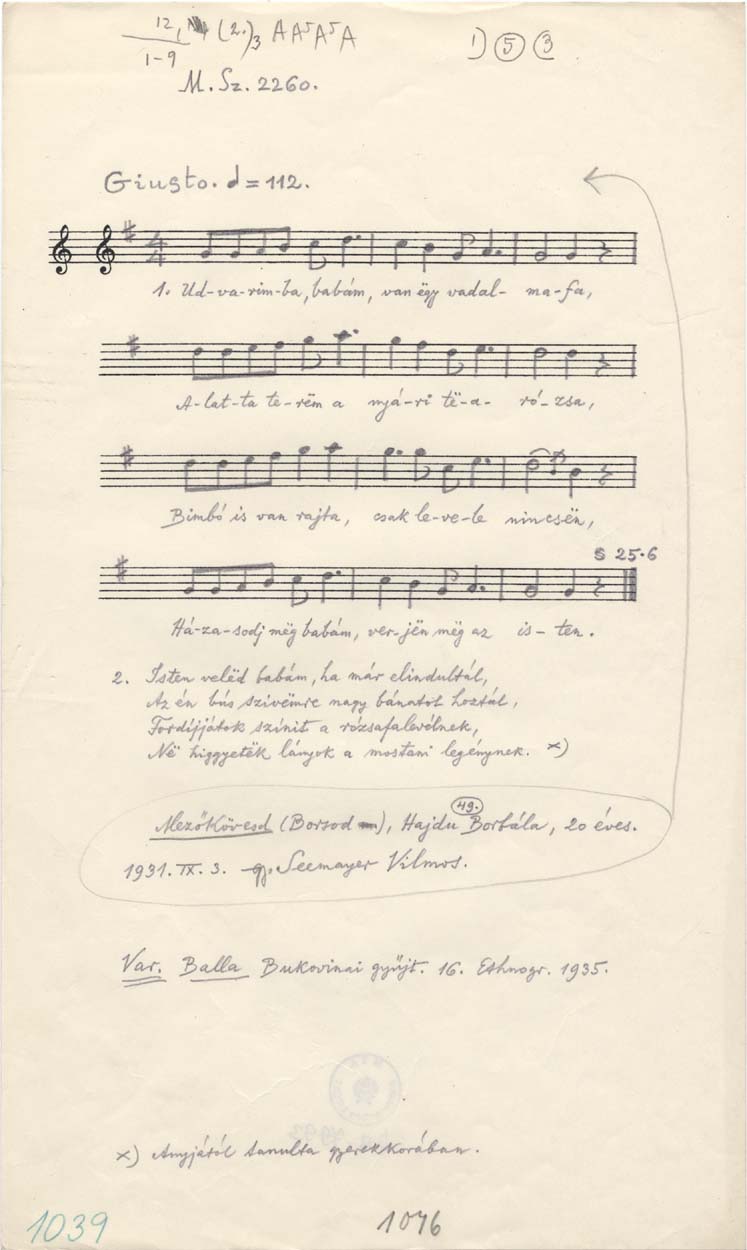 12, (2.)3 A A⁵ A⁵ A
1-9
1) ⑤ ③
M. Sz. 2260.
Giusto. = 112.
1. Ud-va-rim-ba, babám, van ëgy vadal- ma-fa,
A-lat-ta te-rëm a nyá-ri të-a- ró-zsa,
Bimbó is van rajta, csak le-ve-le nincsën,
S 25·6
Há-za-sodj mëg babám, ver-jën mëg az is-ten.
2. Isten velëd babám, ha már elindultál,
Az én bús szivëmre nagy bánatot hoztál,
Fordíjjátok színit a rózsafalevélnek,
Në higgyetëk lányok a mostani legénynek. x)
49.
Mezőkövesd (Borsod), Hajdu Borbála, 20 éves.
1931. IX. 3. gy. Seemayer Vilmos.
Var. Balla Bukovinai gyűjt. 16. Ethnogr. 1935.
x) Anyjától tanulta gyerekkorában.
1039
1076